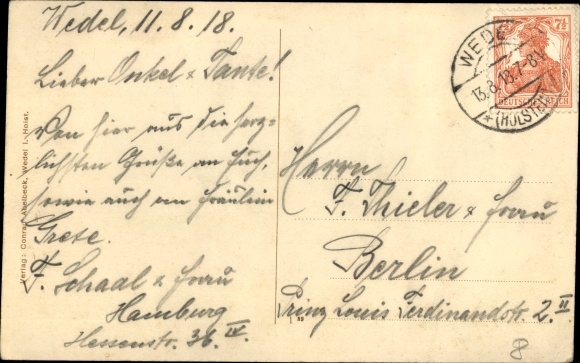 Wedel, 11.8.18.
Lieber Onkel & Tante!
Von hier aus die herz-
lichsten Grüße an Euch,
sowie auch an Fräulein
Grete.
F. Schaal & Frau
Hamburg
Hessenstr. 36 IV.
Verlag: Conrad Abelbeck, Wedel i. Holst.
WEDEL
13.8.18.7-8
*(HOLSTEIN)
7½
DEUTSCHES REICH
Herrn
F. Thieler & Frau
Berlin
Prinz Louis Ferdinandstr. 2 II
8